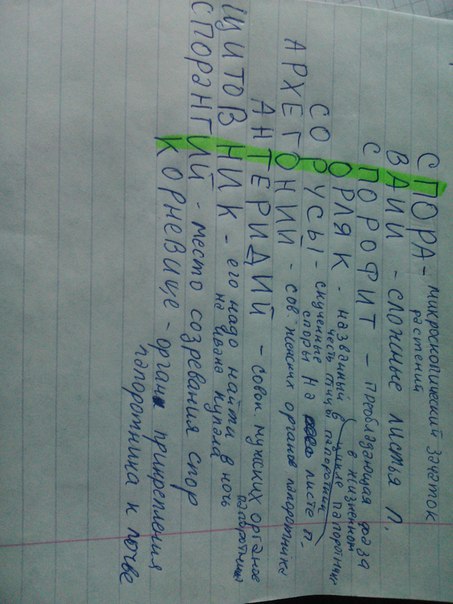 СПОРА - микроскопический зачаток
растений
ВАЙИ - сложные листья П.
СПОРОФИТ - преобладающая фаза
в жизненном
цикле папоротник
ОРЛЯК - названный в
честь птицы папоротник
СОРУСЫ - скученные
споры на листе п.
АРХЕГОНИИ - сов женских органов папоротника
АНТЕРИДИЙ - совок мужских органов
папоротника
ЩИТОВНИК - его надо найти в ночь
на Ивана Купала
СПОРАНГИЙ - место созревания спор
КОРНЕВИЩЕ - орган прикрепления
папоротника к почве